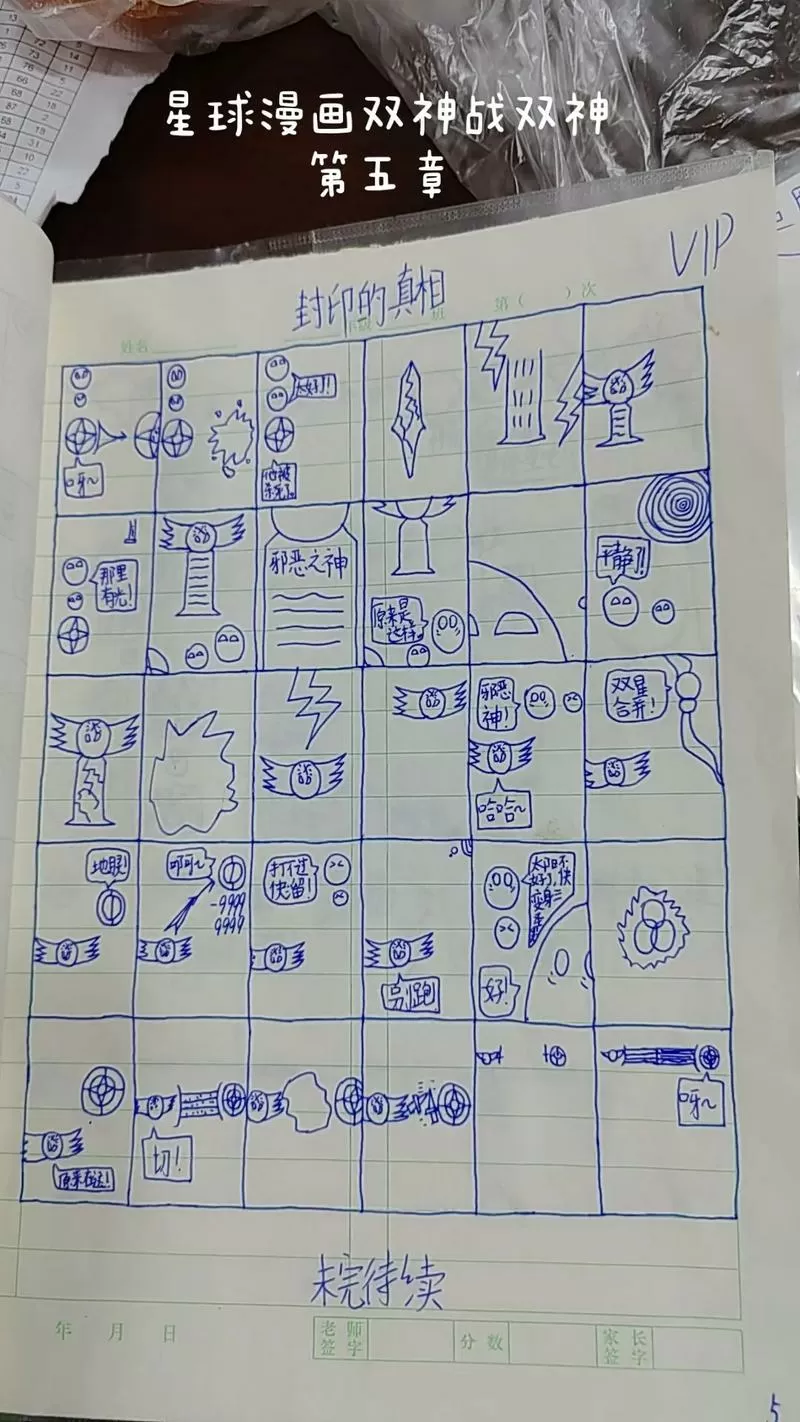 星球漫画双神战双神
第五章
VIP
封印的真相
第( )次
姓名
班
呀~
太好了!
他被
杀死了。
那里
有光!
邪恶之神
原来是
这样。
平静了!
邪恶
神!
哈哈~
双星
合并!
地眼!
-9999
9999
打不过
快溜!
别跑
太阳不
好了,快
变身三
好!
原来在这!
切!
呀~
未完待续
年 月 日
老师
签字
分数
家长
签字
5